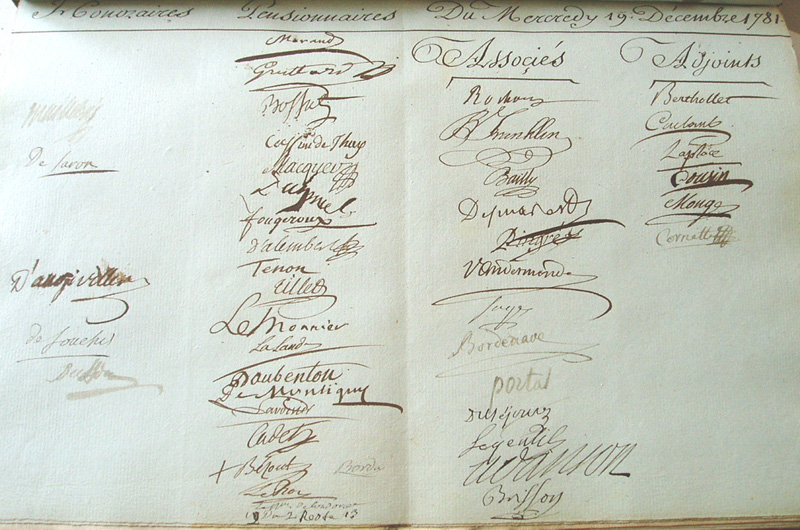 Pensionnaires Du Mercredy 19 Décembre 1781
malherbes
De Saron
D'angiviller
de fouchis
Buffon
Morand
Guettard
Bossut
Cassini de Thury
Macquer
fougeroux
d'alembert
Tenon
Tillet
Le Monnier
La Lande
Daubenton
De Montigny
Lavoisier
Cadet
+ Bézout Borda
Le Roy
Associés
Rochon
B Franklin
Bailly
Desmarest
Pingré
Vandermonde
Sage
Bordenave
portal
Dusejour
Legentil
Brisson
Adjoints
Berthollet
Coulomb
Laplace
Cousin
Monge
Cornette